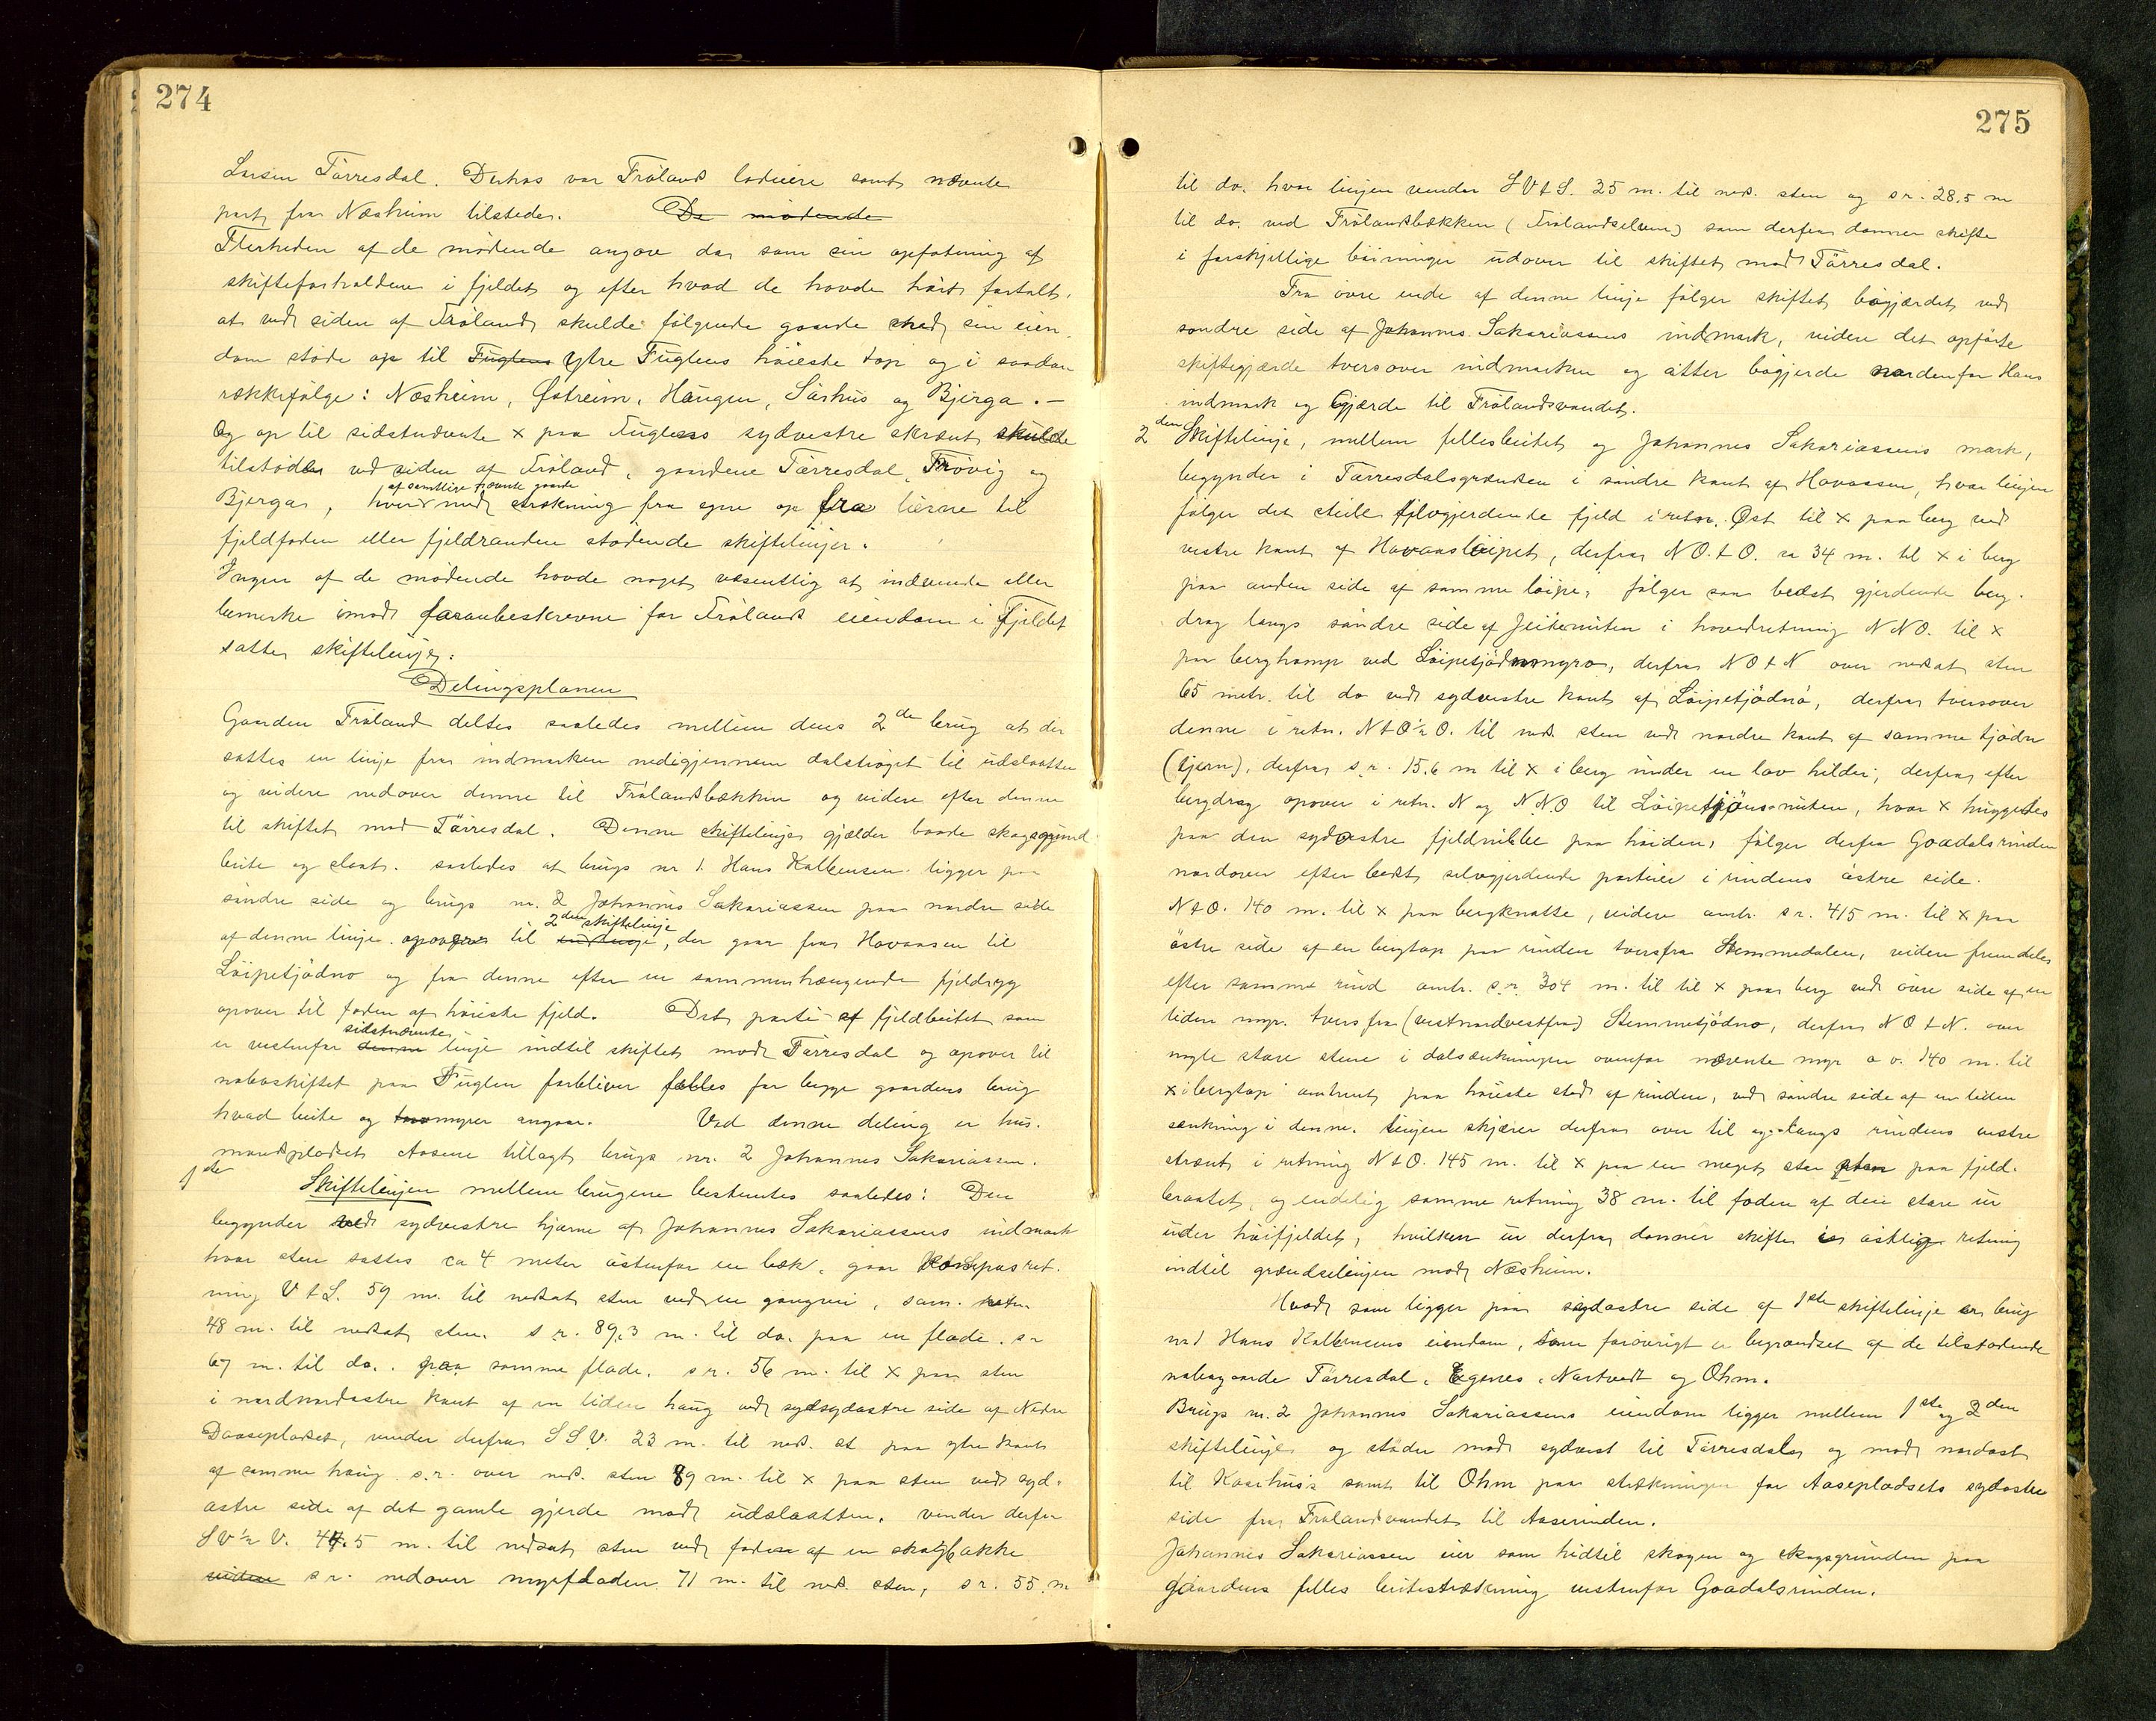 274
Larsen Tørresdal. Derhos var Frøland lodeiere samt nævnte
part fra Næsheim tilstede. De mødende
Flerheden af de mødende angav da som sin opfatning af
skifteforholdene i fjeldet og efter hvad de havde hørt fortalt,
at ved siden af Frøland skulde følgende gaarde med sin eien-
dom støde op til Fuglens Ytre Fuglens høieste top og i saadan
rækkefølge: Næsheim, Østreim, Haugen, Sørhus og Bjerga. —
Og op til sidstnævnte x paa Fuglens sydvestre skrænt skulde
tilstøde ved siden af Frøland, gaardene Tørresdal, Frøvig og
af samtlige nævnte gaarde
Bjerga, hver med strækning fra egne op fra lierne til
fjeldfoden eller fjeldranden stødende skiftelinjer.
Ingen af de mødende havde noget væsentlig at indvende eller
bemerke imod foranbeskrevne for Frøland eiendom i Fjeldet
satte skiftelinje.
Delingsplanen
Gaarden Frøland deltes saaledes mellem dens 2de brug at der
sattes en linje fra indmarken nedigjennem dalstrøget til udslaatten
og videre nedover denne til Frølandsbækken og videre efter denne
til skiftet mod Tørresdal. Denne skiftelinje gjælder baade skogsgrund
beite og slaat. saaledes at brugs nr 1. Hans Kolbensen ligger paa
søndre side og brugs nr. 2 Johannes Sakariassen paa nordre side
2den skiftelinje
af denne linje opover til endlinje, der gaar fra Hovaasen til
Løipetjødno og fra denne efter en sammenhængende fjeldryg
opover til foden af høieste fjeld. Det parti af fjeldbeitet som
sidstnævnte
er vestenfor denne linje indtil skiftet mod Tørresdal og opover til
naboskiftet paa Fuglen forbliver fælles for begge gaardens brug
hvad beite og torvmyrer angaar. Ved denne deling er hus-
mandspladset Aasene tillagt brugs nr. 2 Johannes Sakariassen.
1ste
Skiftelinjen mellem brugene bestemtes saaledes: Den
begynder ved sydvestre hjørne af Johannes Sakariassens indmark
hvor sten sattes ca 4 meter østenfor en bæk, gaar kompasret-
ning V t S. 59 m. til nedsat sten ved en gangvei, sam. retn.
48 m. til nedsat sten. s r. 89,3 m. til do. paa en flade. s r
67 m. til do. paa samme flade. s r. 56 m. til x paa sten
i nordnordøstre kant af en liden haug ved sydsydøstre side af Nedre
Daaseplodset, vender derfra S S V. 23 m. til neds. st paa ytre kant
af samme haug s.r. over neds. sten 89 m. til x paa sten ved syd-
østre side af det gamle gjerde mod udslaatten, vender derfra
S V ½ V. 44.5 m. til nedsat sten ved foden af en skogbakke
videre s r. nedover myrfladen 71 m. til neds. sten, s r. 55 m
275
til do. hvor linjen vender S V t S. 25 m. til neds. sten og s r. 28.5 m
til do. ved Frølandsbækken (Frølandselven) som derfra danner skifte
i forskjellige bøininger udover til skiftet mod Tørresdal.
Fra øvre ende af denne linje følger skiftet bøgjærdet ved
søndre side af Johannes Sakariassens indmark, videre det opførte
skiftegjærde tversover indmarken og atter bøgjerde nordenfor Hans
indmark og Gjærde til Frølandsvandet.
2den Skiftelinje, mellem fellesbeitet og Johannes Sakariassens mark,
begynder i Tørresdalsgrændsen i søndre kant af Hovaasen, hvor linjen
følger det steile sjelvgjerdende fjeld i retn. Øst til x paa berg ved
vestre kant af Hovaasløipet, derfra N O. t O. ca 34 m. til x i berg
paa anden side af samme løipe, følger saa bedst gjerdende berg-
drag langs søndre side af Jeitenuten i hovedretning N N O. til x
paa berghamp ved Løipetjødnmyro, derfra N O t N over nedsat sten
65 metr. til do ved sydvestre kant af Løipetjødnå, derfra tversover
denne i retn. N t O ½ O. til neds. sten ved nordre kant af samme tjødn
(tjern), derfra s r. 15.6 m til x i berg under en lav hilder, derfra efter
bergdrag opover i retn. N og N N O til Løipetjønsnuten, hvor x huggedes
paa den sydvestre fjeldnibbe paa høiden, følger derfra Goadalsrinden
nordover efter bedst selvgjerdende partier i rindens østre side.
N t O. 140 m. til x paa bergknatte, videre omtr. s r. 415 m. til x paa
østre side af en bergtop paa rinden tversfra Stemmedalen, videre fremdeles
efter samme rind omtr. s.r. 304 m. til til x paa berg ved øvre side af en
liden myr. tvers fra (vestnordvestfra) Stemmetjødno, derfra N O t N. over
nogle store stene i dalsænkningen ovenfor nævnte myr o v. 140 m. til
x i bergtop omtrent paa høieste sted af rinden, ved søndre side af en liden
senkning i denne. linjen skjærer derfra over til og langs rindens vestre
skrænt i retning N t O. 145 m. til x paa en meget stor sten paa fjeld-
braatet, og endelig samme retning 38 m. til foden af den store ur
under høifjeldet, hvilken ur derfra danner skifte i østlig retning
indtil grændselinjen mod Næsheim.
Hvad som ligger paa sydøstre side af 1ste skiftelinje er brug
no 1 Hans Kolbensens eiendom, som forøvrigt er begrændset af de tilstødende
nabogaarde Tørresdal, Egenes, Nartvedt og Ohm.
Brugs nr. 2 Johannes Sakariassens eiendom ligger mellem 1ste og 2den
skiftelinje og støder mod sydvest til Tørresdals og mod nordost
til Kaarhus's samt til Ohm paa strækningen for Aaseplodsets sydøstre
side fra Frølandsvandet til Aaserinden.
Johannes Sakariassen eier som hidtil skogen og skogsgrunden paa
gaardens felles beitestrækning vestenfor Goadalsrinden.